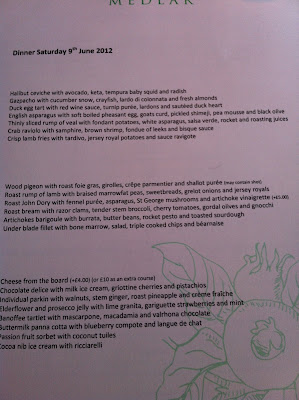 MEDLAR
Dinner Saturday 9th June 2012
Halibut ceviche with avocado, keta, tempura baby squid and radish
Gazpacho with cucumber snow, crayfish, lardo di colonnata and fresh almonds
Duck egg tart with red wine sauce, turnip purée, lardons and sautéed duck heart
English asparagus with soft boiled pheasant egg, goats curd, pickled shimeji, pea mousse and black olive
Thinly sliced rump of veal with fondant potatoes, white asparagus, salsa verde, rocket and roasting juices
Crab raviolo with samphire, brown shrimp, fondue of leeks and bisque sauce
Crisp lamb fries with tardivo, jersey royal potatoes and sauce ravigote
Wood pigeon with roast foie gras, girolles, crêpe parmentier and shallot purée (may contain shot)
Roast rump of lamb with braised marrowfat peas, sweetbreads, grelot onions and jersey royals
Roast John Dory with fennel purée, asparagus, St George mushrooms and artichoke vinaigrette (+£5.00)
Roast bream with razor clams, tender stem broccoli, cherry tomatoes, gordal olives and gnocchi
Artichokes barigoule with burrata, butter beans, rocket pesto and toasted sourdough
Under blade fillet with bone marrow, salad, triple cooked chips and béarnaise
Cheese from the board (+£4.00) (or £10 as an extra course)
Chocolate delice with milk ice cream, griottine cherries and pistachios
Individual parkin with walnuts, stem ginger, roast pineapple and crème fraîche
Elderflower and prosecco jelly with lime granita, gariguette strawberries and mint
Banoffee tartlet with mascarpone, macadamia and valrhona chocolate
Buttermilk panna cotta with blueberry compote and langue de chat
Passion fruit sorbet with coconut tuiles
Cocoa nib ice cream with ricciarelli